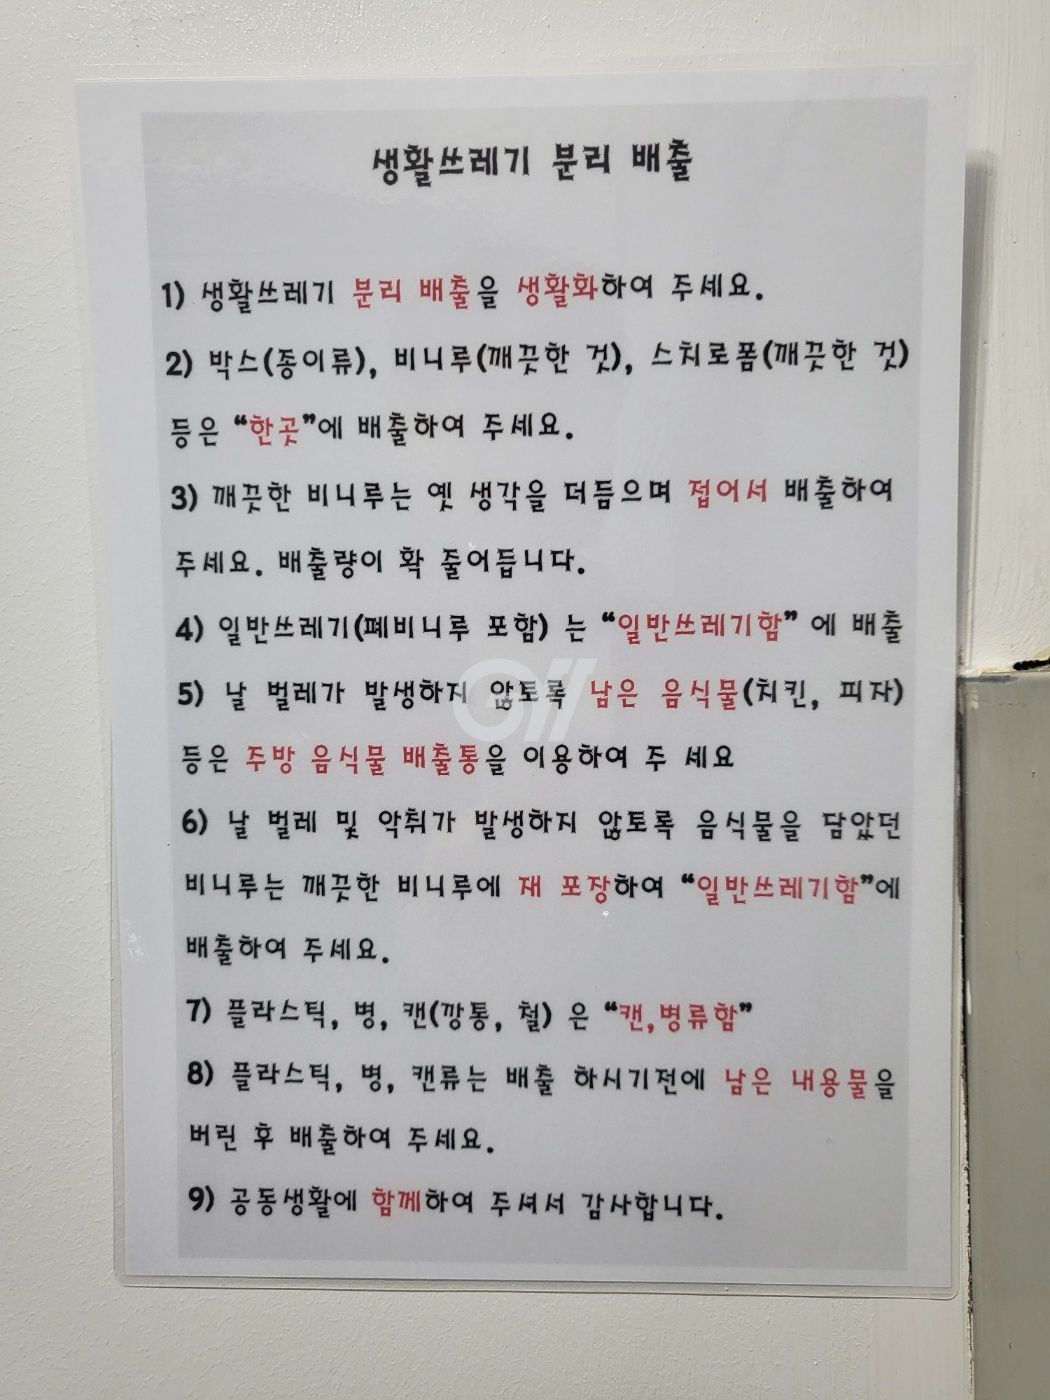 생활쓰레기 분리 배출
1) 생활쓰레기 분리 배출을 생활화하여 주세요.
2) 박스(종이류), 비니루(깨끗한 것), 스치로폼(깨끗한 것)
등은 “한곳”에 배출하여 주세요.
3) 깨끗한 비니루는 옛 생각을 더듬으며 접어서 배출하여
주세요. 배출량이 확 줄어듭니다.
4) 일반쓰레기(폐비니루 포함) 는 “일반쓰레기함” 에 배출
5) 날 벌레가 발생하지 않토록 남은 음식물(치킨, 피자)
등은 주방 음식물 배출통을 이용하여 주 세요
6) 날 벌레 및 악취가 발생하지 않토록 음식물을 담았던
비니루는 깨끗한 비니루에 재 포장하여 “일반쓰레기함”에
배출하여 주세요.
7) 플라스틱, 병, 캔(깡통, 철) 은 “캔,병류함”
8) 플라스틱, 병, 캔류는 배출 하시기전에 남은 내용물을
버린 후 배출하여 주세요.
9) 공동생활에 함께하여 주셔서 감사합니다.